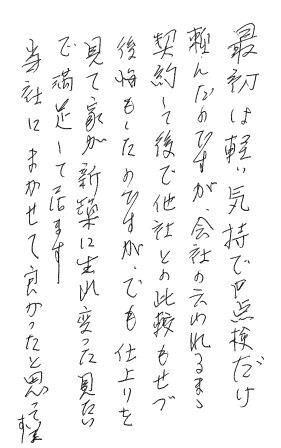 最初は軽い気持で点検だけ
頼んだのですが、会社の云われるまゝ
契約して後で他社との比較もせづ
後悔もしたのですが、でも仕上りを
見て家が新築に生れ変った見たい
で満足して居ます
当社にまかせて良かったと思って